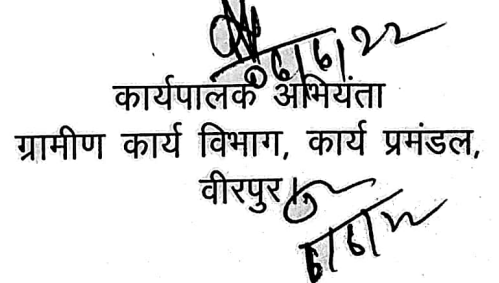 06/6/22
कार्यपालक अभियंता
ग्रामीण कार्य विभाग, कार्य प्रमंडल,
वीरपुर।
6/6/22